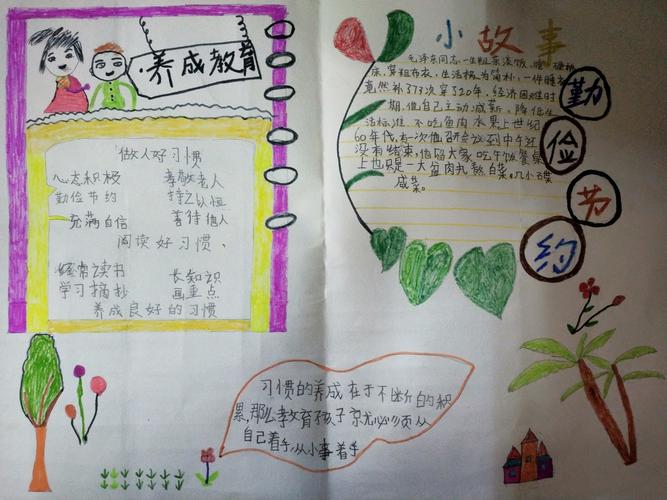 养成教育
做人好习惯
心态积极 孝敬老人
勤俭节约 持之以恒
充满自信 善待他人
阅读好习惯、
经常读书 长知识
学习摘抄 画重点
养成良好的习惯
小故事
毛泽东同志一生粗茶淡饭,睡硬板
床,穿粗布衣,生活极为简朴,一件睡衣
竟然补了73次穿了20年。经济困难时
期,他自己主动减薪、降低生
活标准,不吃鱼肉水果上世纪
60年代,有一次他召开会议到中午还
没有结束,他留大家吃午饭餐桌
上也只是一大盆肉丸熬白菜。几小碟
咸菜。
勤
俭
节
约
习惯的养成在于不断的积
累,那么教育孩子就必须从
自己着手,从小事着手